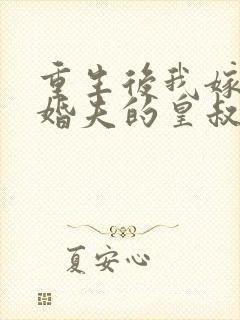 重生後我嫁
婚夫的皇叔
夏安心